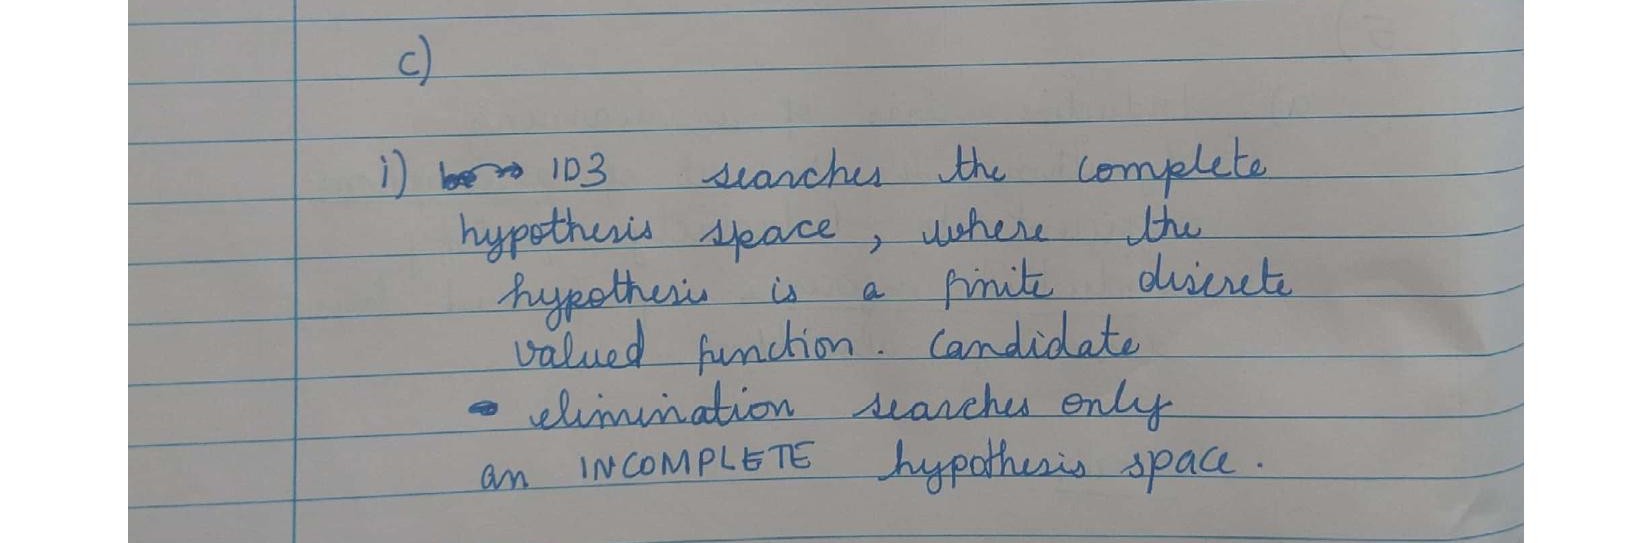 c)
i) ID3 searches the complete
hypothesis space, where the
hypothesis is a finite discrete
valued function. Candidate
elimination searches only
an INCOMPLETE hypothesis space.